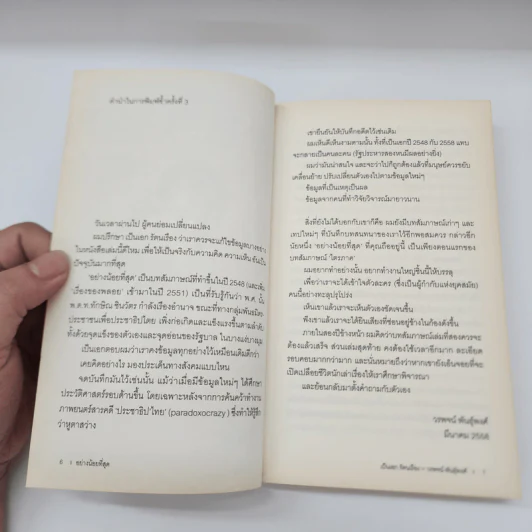 คำนำในการพิมพ์ครั้งที่ 3
วันเวลาผ่านไป ผู้คนย่อมเปลี่ยนแปลง
ผมปรึกษา เป็นเอก รัตนเรือง ว่าเราควรจะแก้ไขข้อมูลบางอย่าง
ในหนังสือเล่มนี้ดีไหม เพื่อให้เป็นจริงกับความคิด ความเห็น อันเป็น
ปัจจุบันมากที่สุด
'อย่างน้อยที่สุด' เป็นบทสัมภาษณ์ที่ทำขึ้นในปี 2548 (และเพิ่ม
เรื่องของพลอย' เข้ามาในปี 2551) เป็นที่รับรู้กันว่า พ.ศ. นั้น
พ.ต.ท.ทักษิณ ชินวัตร กำลังเรืองอำนาจ ขณะที่ทางกลุ่มพันธมิตร
ประชาชนเพื่อประชาธิปไตย เพิ่งก่อเกิดและแข็งแรงขึ้นตามลำดับ
ทั้งด้วยจุดแข็งของตัวเองและจุดอ่อนของรัฐบาล ในบางแง่บางมุม
เป็นเอกตอบผมว่าเราคงข้อมูลทุกอย่างไว้เหมือนเดิมดีกว่า
เคยคิดอย่างไร มองประเด็นทางสังคมแบบไหน
จดบันทึกมันไว้เช่นนั้น แม้ว่าเมื่อมีข้อมูลใหม่ๆ ได้ศึกษา
ประวัติศาสตร์รอบด้านขึ้น โดยเฉพาะหลังจากการค้นคว้าทำงาน
ภาพยนตร์สารคดี 'ประชาธิป'ไทย' (paradoxocracy) ซึ่งทำให้รู้สึก
ว่าหูตาสว่าง
8 | อย่างน้อยที่สุด
เขายืนยันให้บันทึกอดีตไว้เช่นเดิม
ผมเห็นดีเห็นงามตามนั้น ทั้งที่เป็นเอกปี 2548 กับ 2558 แทบ
จะกลายเป็นคนละคน (รัฐประหารสองหนมีผลอย่างยิ่ง)
ผมว่ามันน่าสนใจ และจะว่าไปก็ถูกต้องแล้วที่มนุษย์ควรขยับ
เคลื่อนย้าย ปรับเปลี่ยนตัวเองไปตามข้อมูลใหม่ๆ
ข้อมูลที่เป็นเหตุเป็นผล
ข้อมูลจากคนที่ทำวิจัยวิจารณ์มายาวนาน
สิ่งที่ยังไม่ได้บอกกับเขาก็คือ ผมยังมีบทสัมภาษณ์เก่าๆ และ
เทปใหม่ๆ ที่บันทึกบทสนทนาของเราไว้อีกพอสมควร กล่าวอีก
นัยหนึ่ง 'อย่างน้อยที่สุด' ที่คุณถืออยู่นี้ เป็นเพียงตอนแรกของ
บทสัมภาษณ์ 'ไตรภาค'
ผมอยากทำอย่างนั้น อยากทำงานใหญ่ชิ้นนี้ให้บรรลุ
เพื่อว่าเราจะได้เข้าใจตัวละคร (ซึ่งเป็นผู้กำกับแห่งยุคสมัย)
คนนี้อย่างทะลุปรุโปร่ง
เห็นเขาแล้วเราจะเห็นตัวเองชัดเจนขึ้น
ฟังเขาแล้วเราจะได้ยินเสียงที่ซ่อนอยู่ข้างในก้องดังขึ้น
ภายในสองปีข้างหน้า ผมคิดว่าบทสัมภาษณ์เล่มที่สองควรจะ
ต้องแล้วเสร็จ ส่วนเล่มสุดท้าย คงต้องใช้เวลาอีกมาก ละเอียด
รอบคอบมากกว่ามาก และนั่นหมายถึงว่าหากเขายังเอ็นจอยที่จะ
เปิดเปลือยชีวิตนักเล่าเรื่องให้เราศึกษาพิจารณา
และย้อนกลับมาตั้งคำถามกับตัวเอง
วรพจน์ พันธุ์พงศ์
มีนาคม 2558
เป็นเอก รัตนเรือง — วรพจน์ พันธุ์พงศ์ |